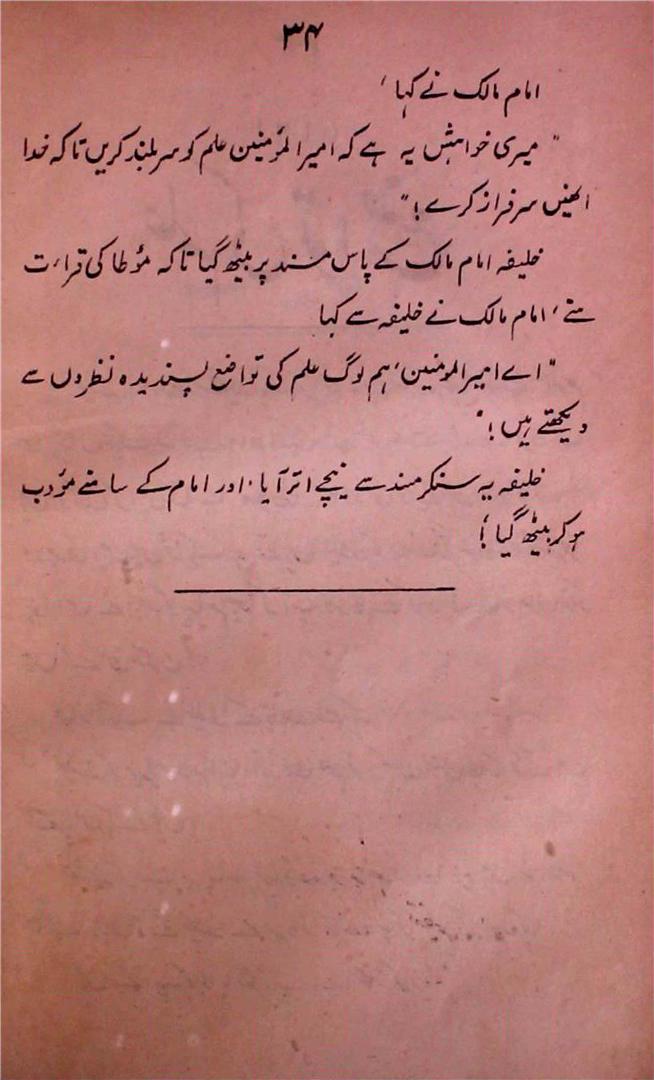 ۳۴
امام مالک نے کہا ،
" میری خواہش یہ ہے کہ امیر المؤمنین علم کو سربلند کریں تاکہ خدا
انہیں سرفراز کرے ! "
خلیفہ امام مالک کے پاس مسند پر بیٹھ گیا تاکہ مؤطا کی قراءت
سنے ، امام مالک نے خلیفہ سے کہا
" اے امیر المومنین ، ہم لوگ علم کی تواضع پسندیدہ نظروں سے
دیکھتے ہیں ! "
خلیفہ یہ سنکر مسند سے نیچے اتر آیا ، اور امام کے سامنے مؤدب
ہو کر بیٹھ گیا !